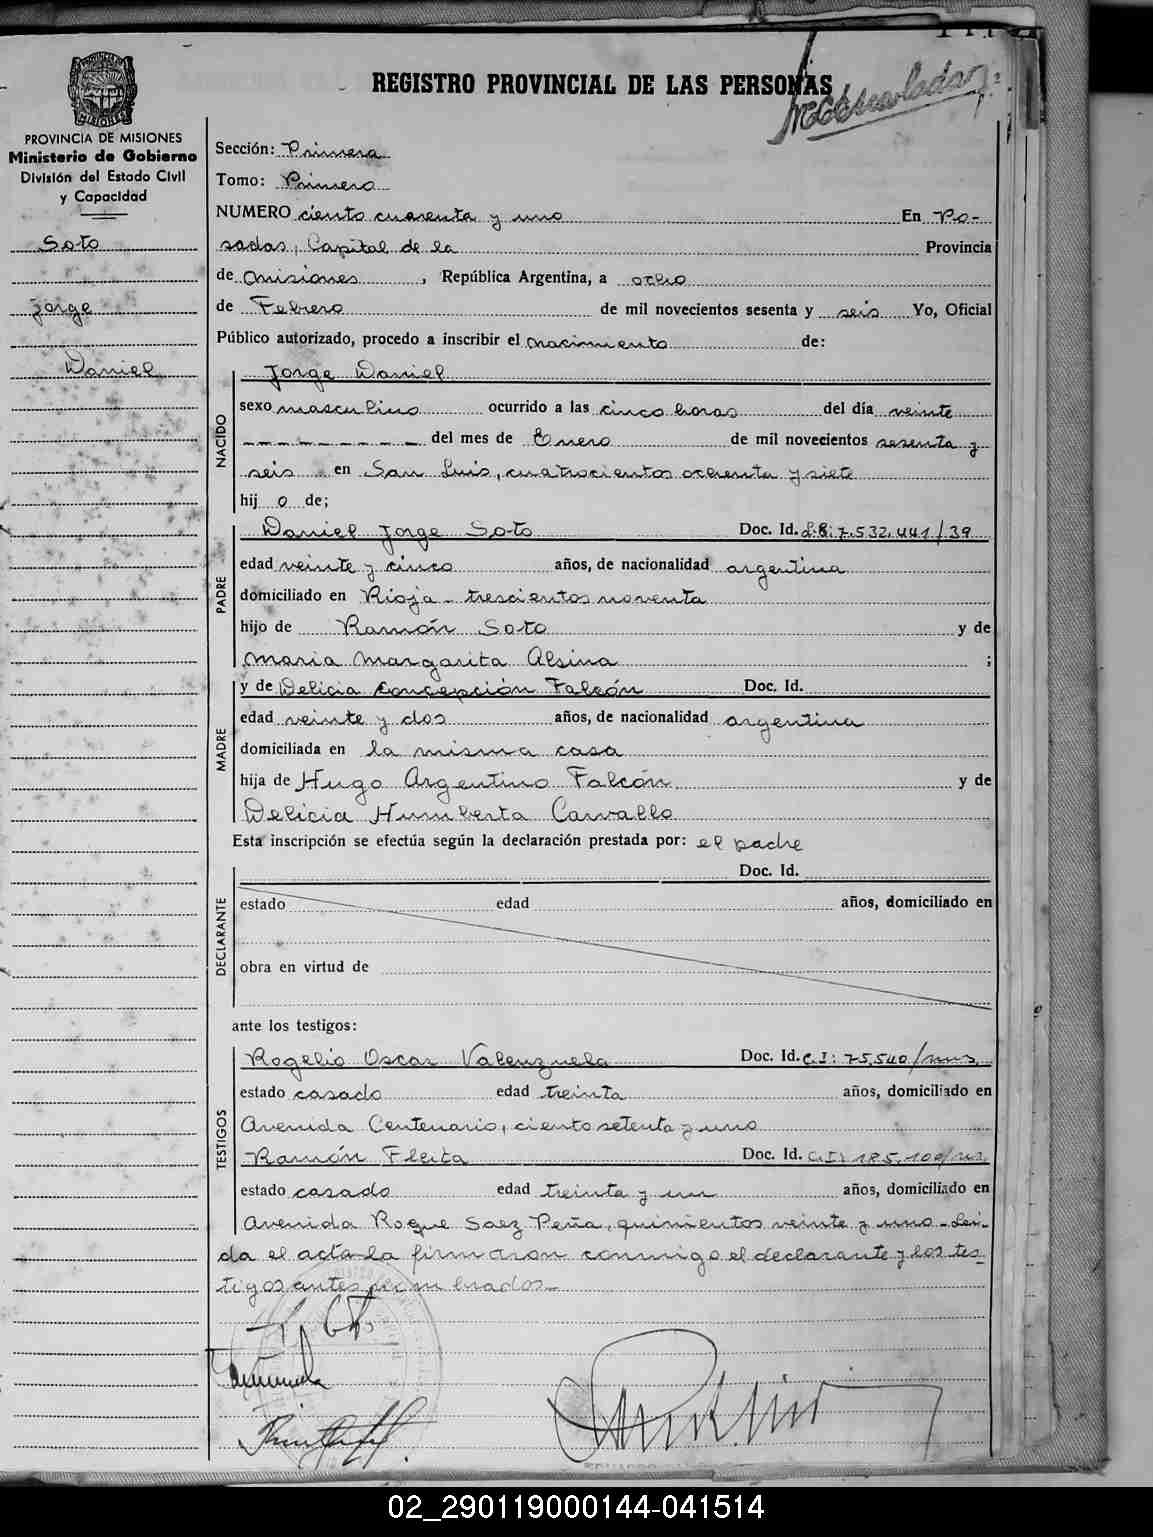 REGISTRO PROVINCIAL DE LAS PERSONAS
PROVINCIA DE MISIONES
Ministerio de Gobierno
División del Estado Civil
y Capacidad
Soto
Jorge
Daniel
Sección: Primera
Tomo: Primero
NUMERO ciento cuarenta y uno En Po-
sadas, Capital de la Provincia
de Misiones, República Argentina, a ocho
de Febrero de mil novecientos sesenta y seis Yo, Oficial
Público autorizado, procedo a inscribir el nacimiento de:
Jorge Daniel
NACIDO
sexo masculino ocurrido a las cinco horas del día veinte
del mes de Enero de mil novecientos sesenta y
seis en San Luis, cuatrocientos ochenta y siete
hij o de;
PADRE
Daniel Jorge Soto Doc. Id. 7.532.441/39
edad veinte y cinco años, de nacionalidad argentina
domiciliado en Rioja - trescientos noventa
hijo de Ramón Soto y de
Maria Margarita Alsina ;
MADRE
y de Delicia Concepción Falcón Doc. Id.
edad veinte y dos años, de nacionalidad argentina
domiciliada en la misma casa
hija de Hugo Argentino Falcón y de
Delicia Humberta Carvallo
Esta inscripción se efectúa según la declaración prestada por: el padre
DECLARANTE
Doc. Id.
estado edad años, domiciliado en
obra en virtud de
ante los testigos:
TESTIGOS
Rogelio Oscar Valenzuela Doc. Id. C.I: 75.540/mns
estado casado edad treinta años, domiciliado en
Avenida Centenario, ciento setenta y uno
Ramón Fleita Doc. Id. C.I: 185.100/
estado casado edad treinta y un años, domiciliado en
Avenida Roque Saez Peña, quinientos veinte y uno - Lei-
da el acta la firmaron conmigo el declarante y los tes-
tigos antes nombrados.-
02_290119000144-041514